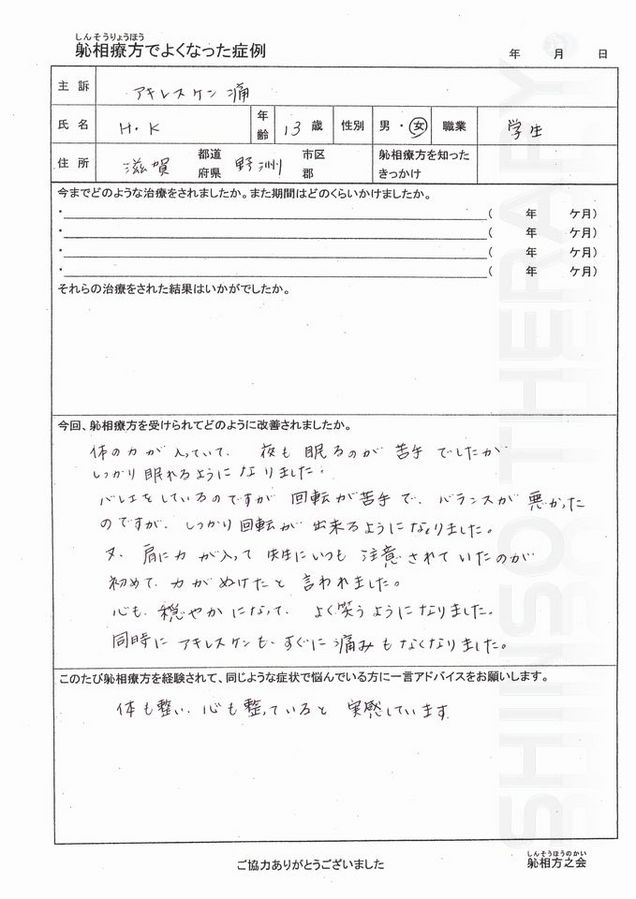 しんそうりょうほう
躰相療方でよくなった症例
年 月 日
主訴 アキレスケン痛
氏名 H.K 年齢 13歳 性別 男・女 職業 学生
住所 滋賀 都道府県 野洲 市区郡 躰相療方を知ったきっかけ
今までどのような治療をされましたか。また期間はどのくらいかけましたか。
・ ( 年 ケ月)
・ ( 年 ケ月)
・ ( 年 ケ月)
・ ( 年 ケ月)
それらの治療をされた結果はいかがでしたか。
今回、躰相療方を受けられてどのように改善されましたか。
体の力が入っていて、夜も眠るのが苦手でしたが
しっかり眠れるようになりました。
バレエをしているのですが回転が苦手で、バランスが悪かった
のですが、しっかり回転が出来るようになりました。
又、肩に力が入って先生にいつも注意されていたのが
初めて力がぬけたと言われました。
心も、穏やかになって、よく笑うようになりました。
同時にアキレスケンも、すぐに痛みもなくなりました。
このたび躰相療方を経験されて、同じような症状で悩んでいる方に一言アドバイスをお願いします。
体も整い、心も整っていると実感しています
ご協力ありがとうございました
しんそうほうのかい
躰相方之会
SHINSO THERAPY